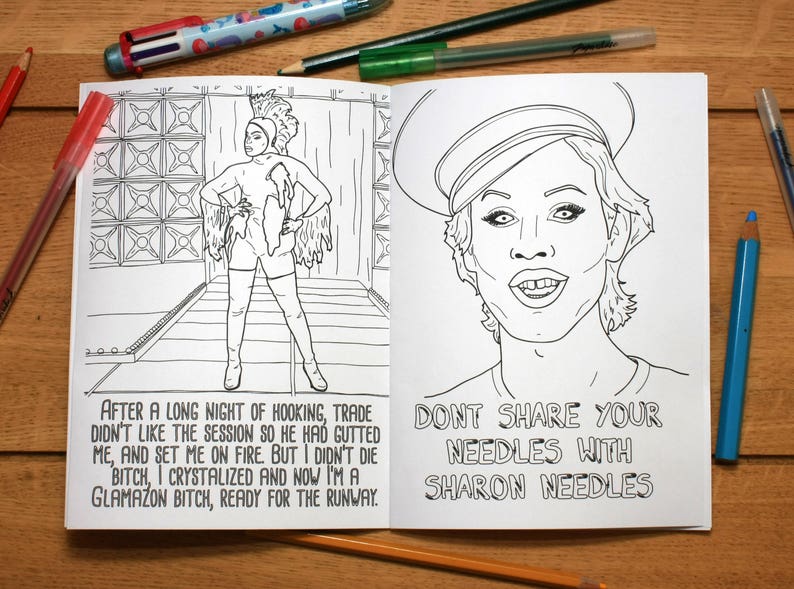 AFTER A LONG NIGHT OF HOOKING, TRADE
DIDN'T LIKE THE SESSION SO HE HAD GUTTED
ME, AND SET ME ON FIRE. BUT I DIDN'T DIE
BITCH, I CRYSTALIZED AND NOW I'M A
GLAMAZON BITCH, READY FOR THE RUNWAY.
DONT SHARE YOUR
NEEDLES WITH
SHARON NEEDLES